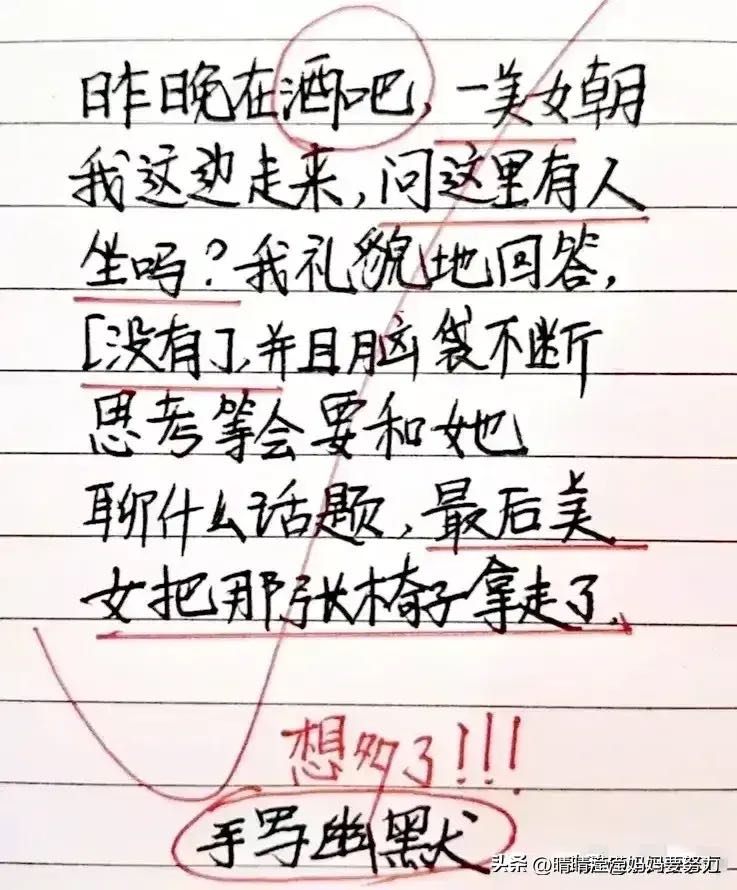 昨日晚在酒吧，一美女朝
我这边走来，问这里有人
坐吗？我礼貌地回答，
[没有]，并且脑袋不断
思考等会要和她
聊什么话题，最后美
女把那张椅子拿走了.
想多了!!!
手写幽默
头条 @晴晴莲莲妈妈要努力